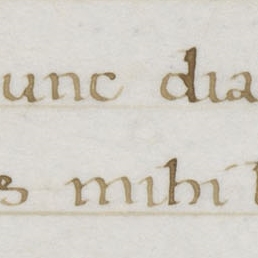 unc dia
s mihi